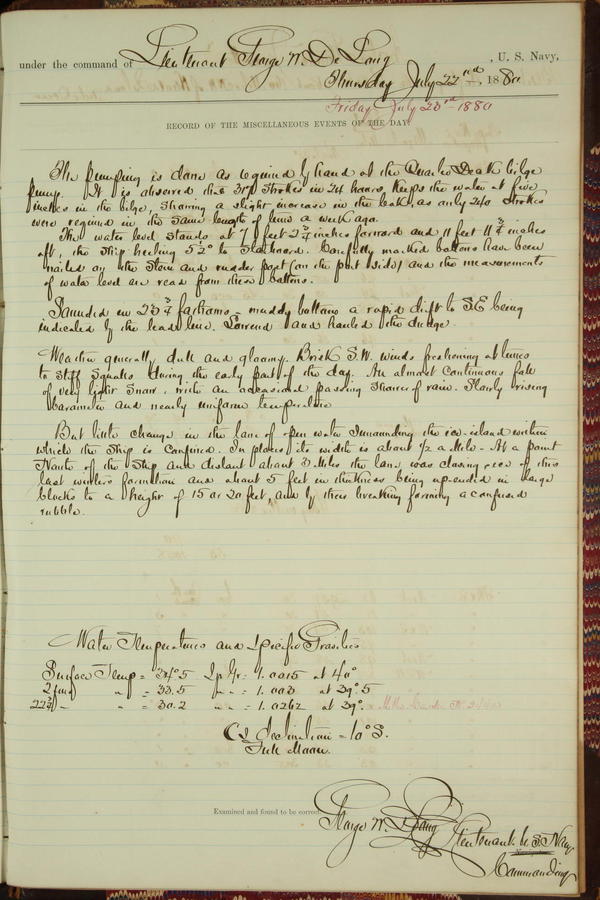 under the command of Lieutenant George W. De Long, U. S. Navy,
Thursday July 22nd, 1880
Friday July 23rd 1880
RECORD OF THE MISCELLANEOUS EVENTS OF THE DAY.
The pumping is done as required by hand at the Quarter Deck bilge
pump. It is observed that strokes in 24 hours, keeps the water at five
inches in the bilge, showing a slight increase in the leak, as only 240 strokes
were required in the same length of time a week ago.
The water level stands at 7 feet 2¾ inches forward and 11 feet 11¾ inches
aft, the ship heeling 5½° to Starboard. Carefully marked battens have been
nailed on the Stem and rudder post (on the port side) and the measurements
of water level are read from these battens.
Sounded in 23¾ fathoms, muddy bottom a rapid drift to SE being
indicated by the lead line. Lowered and hauled the dredge.
Weather generally dull and gloomy. Brisk S.W. winds freshening at times
to stiff squalls during the early part of the day. An almost continuous fall
of very light snow, with an occasional passing shower of rain. Slowly rising
barometer and nearly uniform temperature
But little change in the lane of open water surrounding the ice-island within
which the ship is confined. In places its width is about ½ a mile - At a point
North of the ship and distant about 3 miles the lane was closing, ice of this
last winter's formation and about 5 feet in thickness being up-ended in large
blocks to a height of 15 or 20 feet, and by their breaking forming a confused
rubble.
Water Temperatures and Specific Gravities
Surface Temp = 34°.5 Sp Gr: 1.0015 at 40°
2 fms " = 33.5 " " : 1.003 at 39°.5
22¾ " " = 30.2 " " : 1.0262 at 39°.
declination = 10° S.
Full Moon.
Examined and found to be correct.
George W. De Long Lieutenant U. S. Navy
Commanding